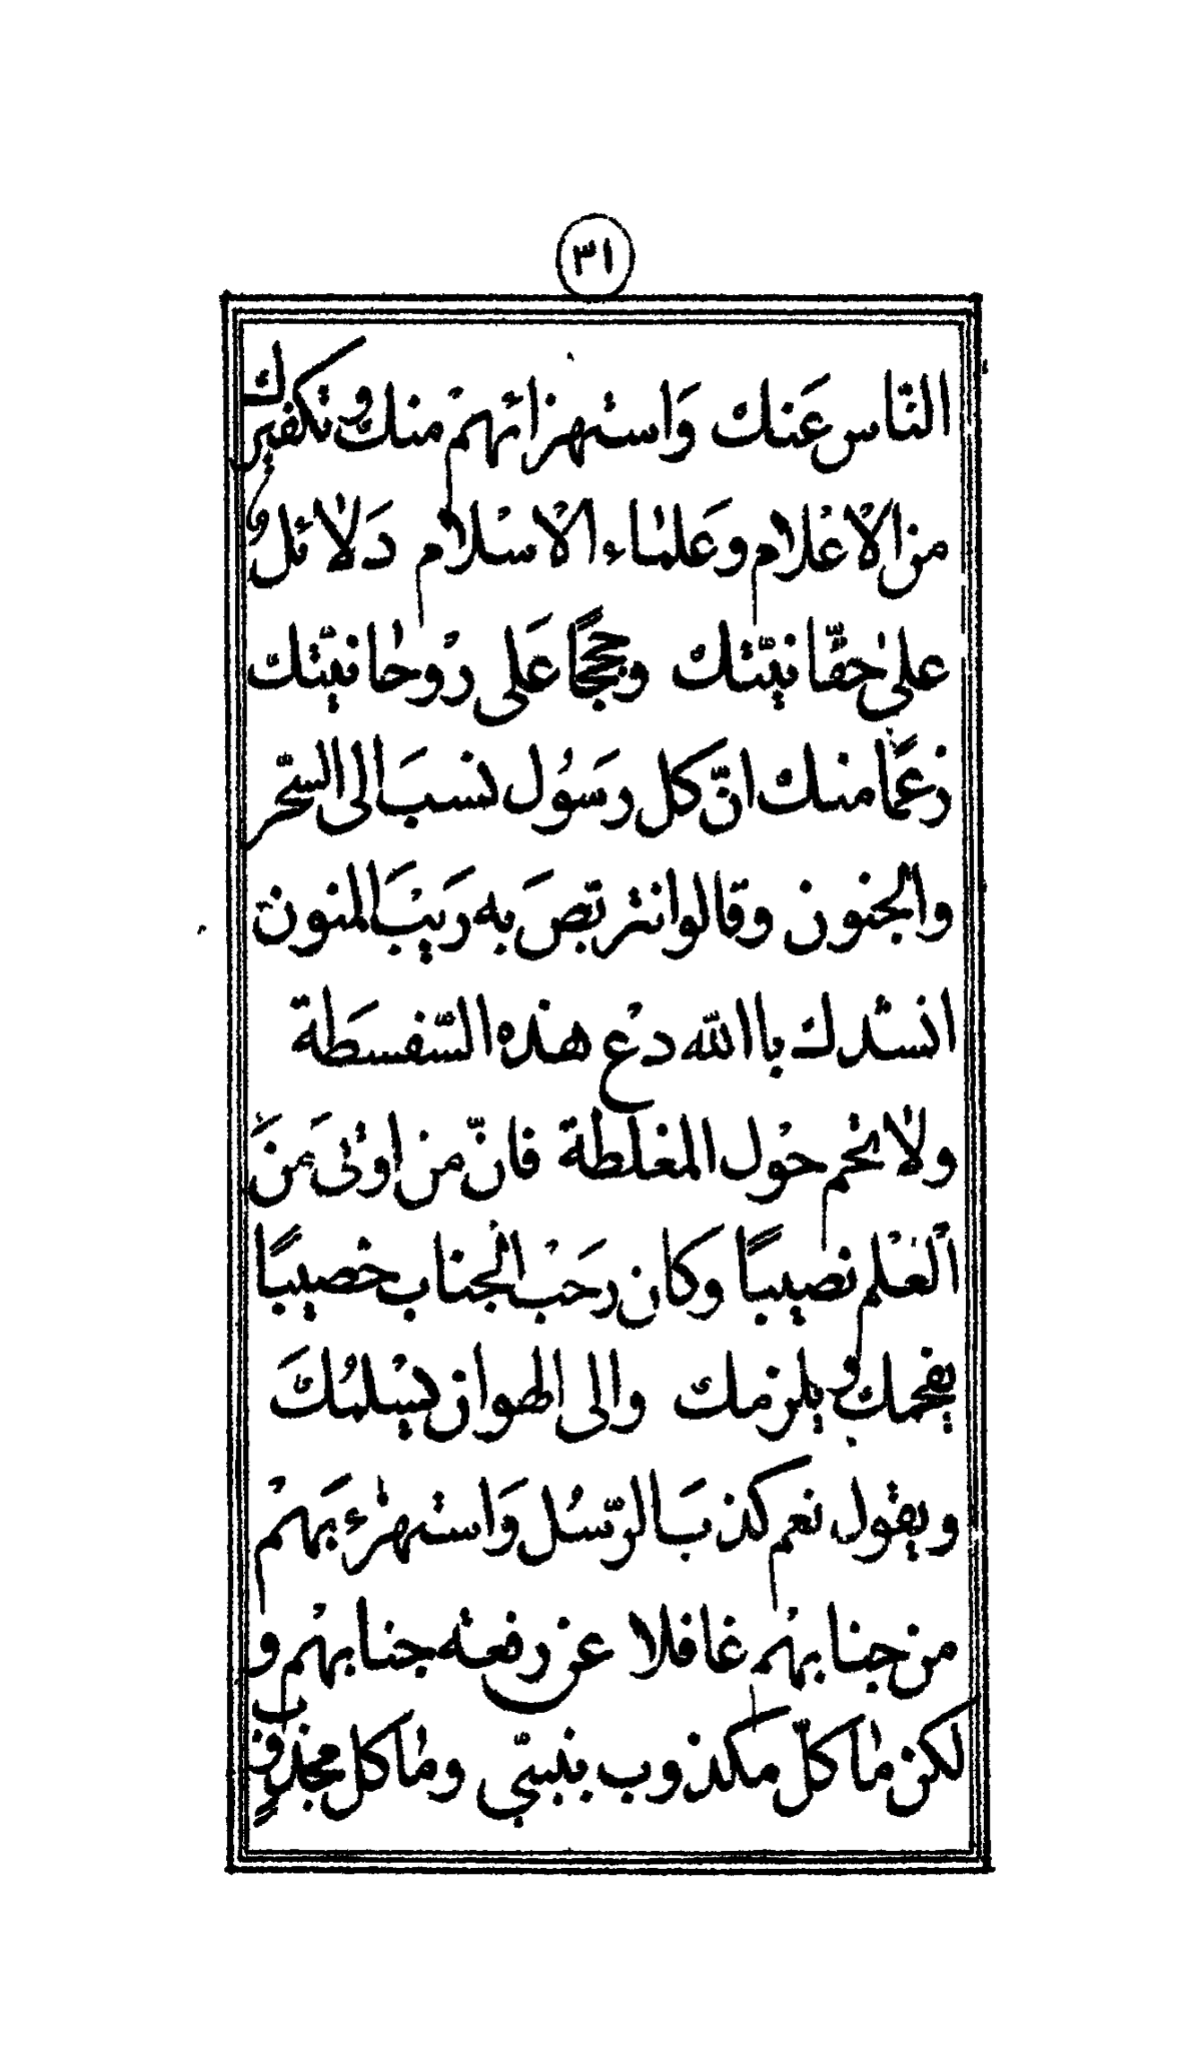 ٣١
النّاس عَنك وَاستهزائهمْ منك وتكفيرك
من الاعْلام وعَلمٰاء الاسْلام دَلائلُ
علىٰ حقّانيّتك وحججًا عَلى رُوحٰانيّتك
زعمًا منك انّ كل رسَوُل نسبَ الى السّحْر
والجنون وقالوا نتربّص به رَيبَ المنون
انشدك باالله دعْ هذه السّفسطة
ولا تحم حوْل المغلطة فانّ من اوتىَ منَ
الْعلم نصيبًا وكان رحَبْ الجناب خصيبًا
يفحمك ويلزمك والى الهوان يسْلمُكَ
ويقول نعم كذبَ الرّسُل وَاستهزء بَهمْ
من جنابهْم غافلا عن رفعته جنابهْم و
لكن مٰا كلّ مكذوب بنبىّ ومٰا كل مجذوبٍ